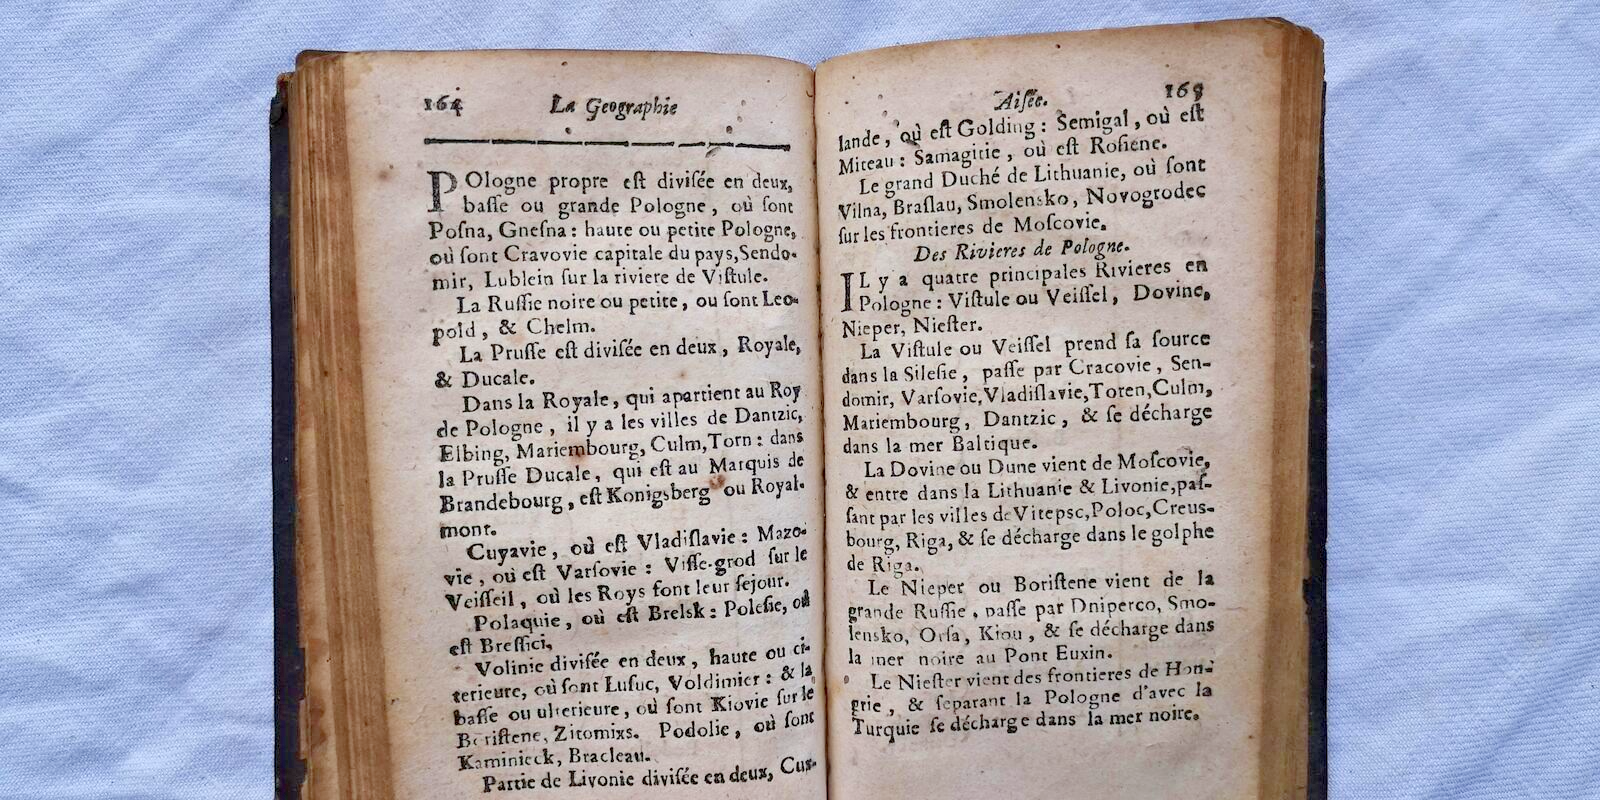 164 La Geographie
POlogne propre est divisée en deux,
basse ou grande Pologne, où sont
Posna, Gnesna: haute ou petite Pologne,
où sont Cravovie capitale du pays, Sendo-
mir, Lublein sur la riviere de Vistule.
La Russie noire ou petite, ou sont Leo-
pold, & Chelm.
La Prusse est divisée en deux, Royale,
& Ducale.
Dans la Royale, qui apartient au Roy
de Pologne, il y a les villes de Dantzic,
Elbing, Mariembourg, Culm, Torn: dans
la Prusse Ducale, qui est au Marquis de
Brandebourg, est Konigsberg ou Royal-
mont.
Cuyavie, où est Vladislavie: Mazo-
vie, où est Varsovie: Visse-grod sur le
Veisseil, où les Roys font leur sejour.
Polaquie, où est Brelsk: Polesie, où
est Bressici,
Volinie divisée en deux, haute ou ci-
terieure, où sont Lusuc, Voldimier: & la
basse ou ulterieure, où sont Kiovie sur le
Boristene, Zitomixs. Podolie, où sont
Kaminieck, Bracleau.
Partie de Livonie divisée en deux, Cur-
Aisée. 165
lande, où est Golding: Semigal, où est
Miteau: Samagitie, où est Rosiene.
Le grand Duché de Lithuanie, où sont
Vilna, Braslau, Smolensko, Novogrodec
sur les frontieres de Moscovie.
Des Rivieres de Pologne.
IL y a quatre principales Rivieres en
Pologne: Vistule ou Veissel, Dovine,
Nieper, Niester.
La Vistule ou Veissel prend sa source
dans la Silesie, passe par Cracovie, Sen-
domir, Varsovie, Vladislavie, Toren, Culm,
Mariembourg, Dantzic, & se décharge
dans la mer Baltique.
La Dovine ou Dune vient de Moscovie,
& entre dans la Lithuanie & Livonie, pas-
sant par les villes de Vitepsc, Poloc, Creus-
bourg, Riga, & se décharge dans le golphe
de Riga.
Le Nieper ou Boristene vient de la
grande Russie, passe par Dniperco, Smo-
lensko, Orsa, Kiou, & se décharge dans
la mer noire au Pont Euxin.
Le Niester vient des frontieres de Hon-
grie, & separant la Pologne d'avec la
Turquie se décharge dans la mer noire.